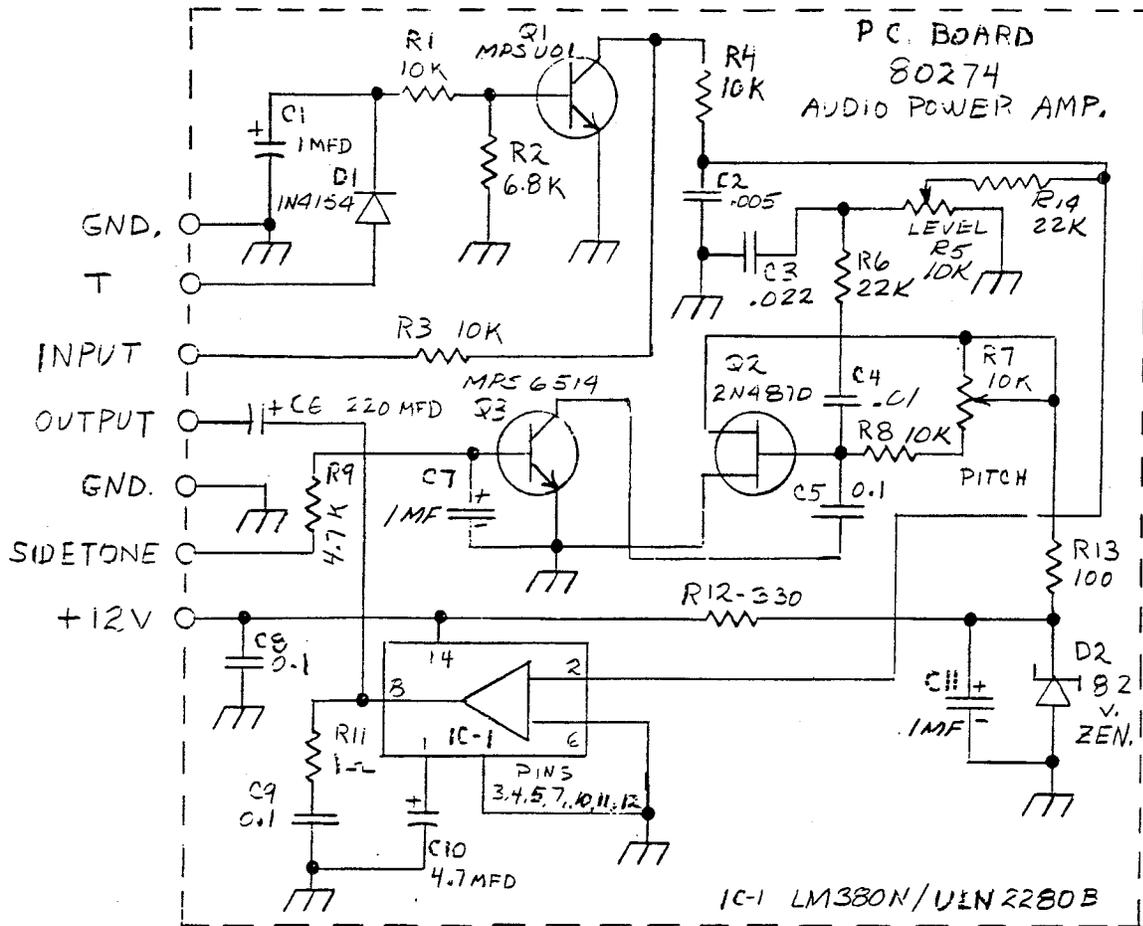 P.C. BOARD
80274
AUDIO POWER AMP.
R1
10K
Q1
MPSU01
R4
10K
C1
+
1MFD
D1
1N4154
R2
6.8K
C2
.005
R14
22K
LEVEL
R5
10K
C3
.022
R6
22K
GND.
T
INPUT
R3 10K
OUTPUT
+ C6 220 MFD
MPS6514
Q3
Q2
2N4870
C4
.01
R7
10K
R8 10K
PITCH
GND.
R9
4.7K
C7
+
1MF
-
C5 0.1
SIDETONE
R13
100
+12V
R12-330
C8
0.1
14
2
8
IC-1
6
1
PINS
3,4,5,7,10,11,12
R11
C9
0.1
+
C10
4.7MFD
C11
+
1MF
-
D2
8.2
V.
ZEN.
IC-1 LM380N/ULN2280B